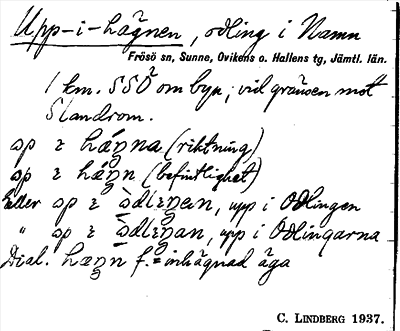 Upp-i-hägnen, odling i Namn
Frösö sn, Sunne, Ovikens o. Hallens tg, Jämtl. län.
1 km. SSÖ om byn; vid gränsen mot
Slandrom.
(riktning)
(befintlighet)
Eller upp i Odlingen
" upp i Odlingarna
Dial. f. = inhägnad äga
C. LINDBERG 1937.